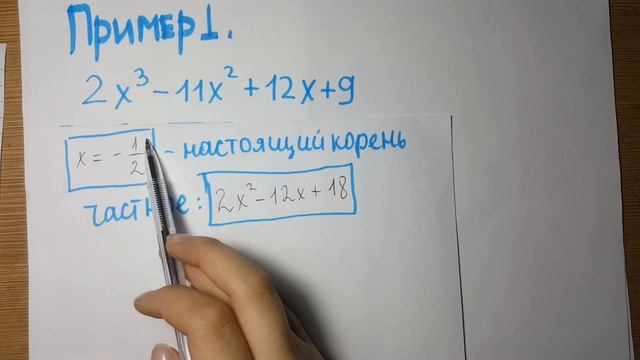 Пример 1.
2x³ - 11x² + 12x + 9
x = -1/2 - настоящий корень
частное: 2x² - 12x + 18